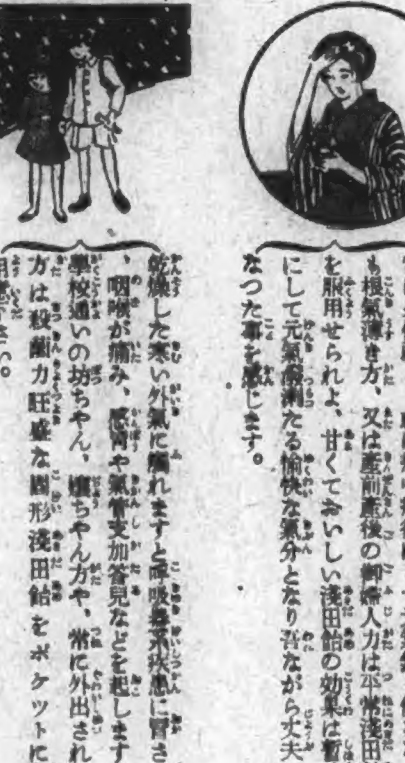 も根氣薄き方、又は産前産後の御婦人方は平常淺田
を服用せられよ、甘くておいしい淺田飴の効果は暫
にして元氣溌溂たる愉快な氣分となり吾ながら丈夫
なつた事を感じます。
乾燥した寒い外氣に觸れますと呼吸器系疾患に冒さ
、咽喉が痛み、感冒や氣管支加答兒などを起します
學校通いの坊ちやん、孃ちやん方や、常に外出され
方は殺菌力旺盛な固形淺田飴をポケットに
用
さい。